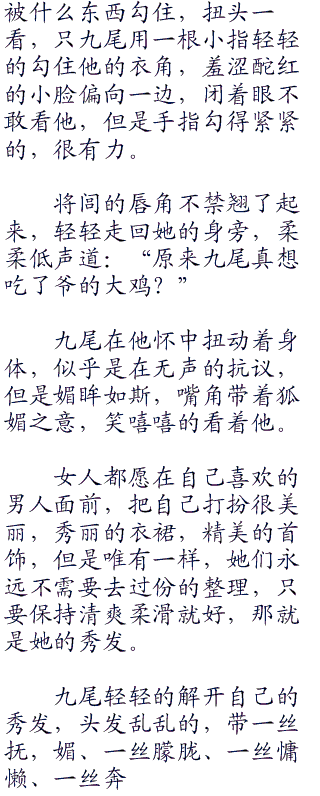 被什么东西勾住，扭头一
看，只九尾用一根小指轻轻
的勾住他的衣角，羞涩酡红
的小脸偏向一边，闭着眼不
敢看他，但是手指勾得紧紧
的，很有力。
将闾的唇角不禁翘了起
来，轻轻走回她的身旁，柔
柔低声道：“原来九尾真想
吃了爷的大鸡？”
九尾在他怀中扭动着身
体，似乎是在无声的抗议，
但是媚眸如斯，嘴角带着狐
媚之意，笑嘻嘻的看着他。
女人都愿在自己喜欢的
男人面前，把自己打扮很美
丽，秀丽的衣裙，精美的首
饰，但是唯有一样，她们永
远不需要去过份的整理，只
要保持清爽柔滑就好，那就
是她的秀发。
九尾轻轻的解开自己的
秀发，头发乱乱的，带一丝
抚，媚、一丝朦胧、一丝慵
懒、一丝奔